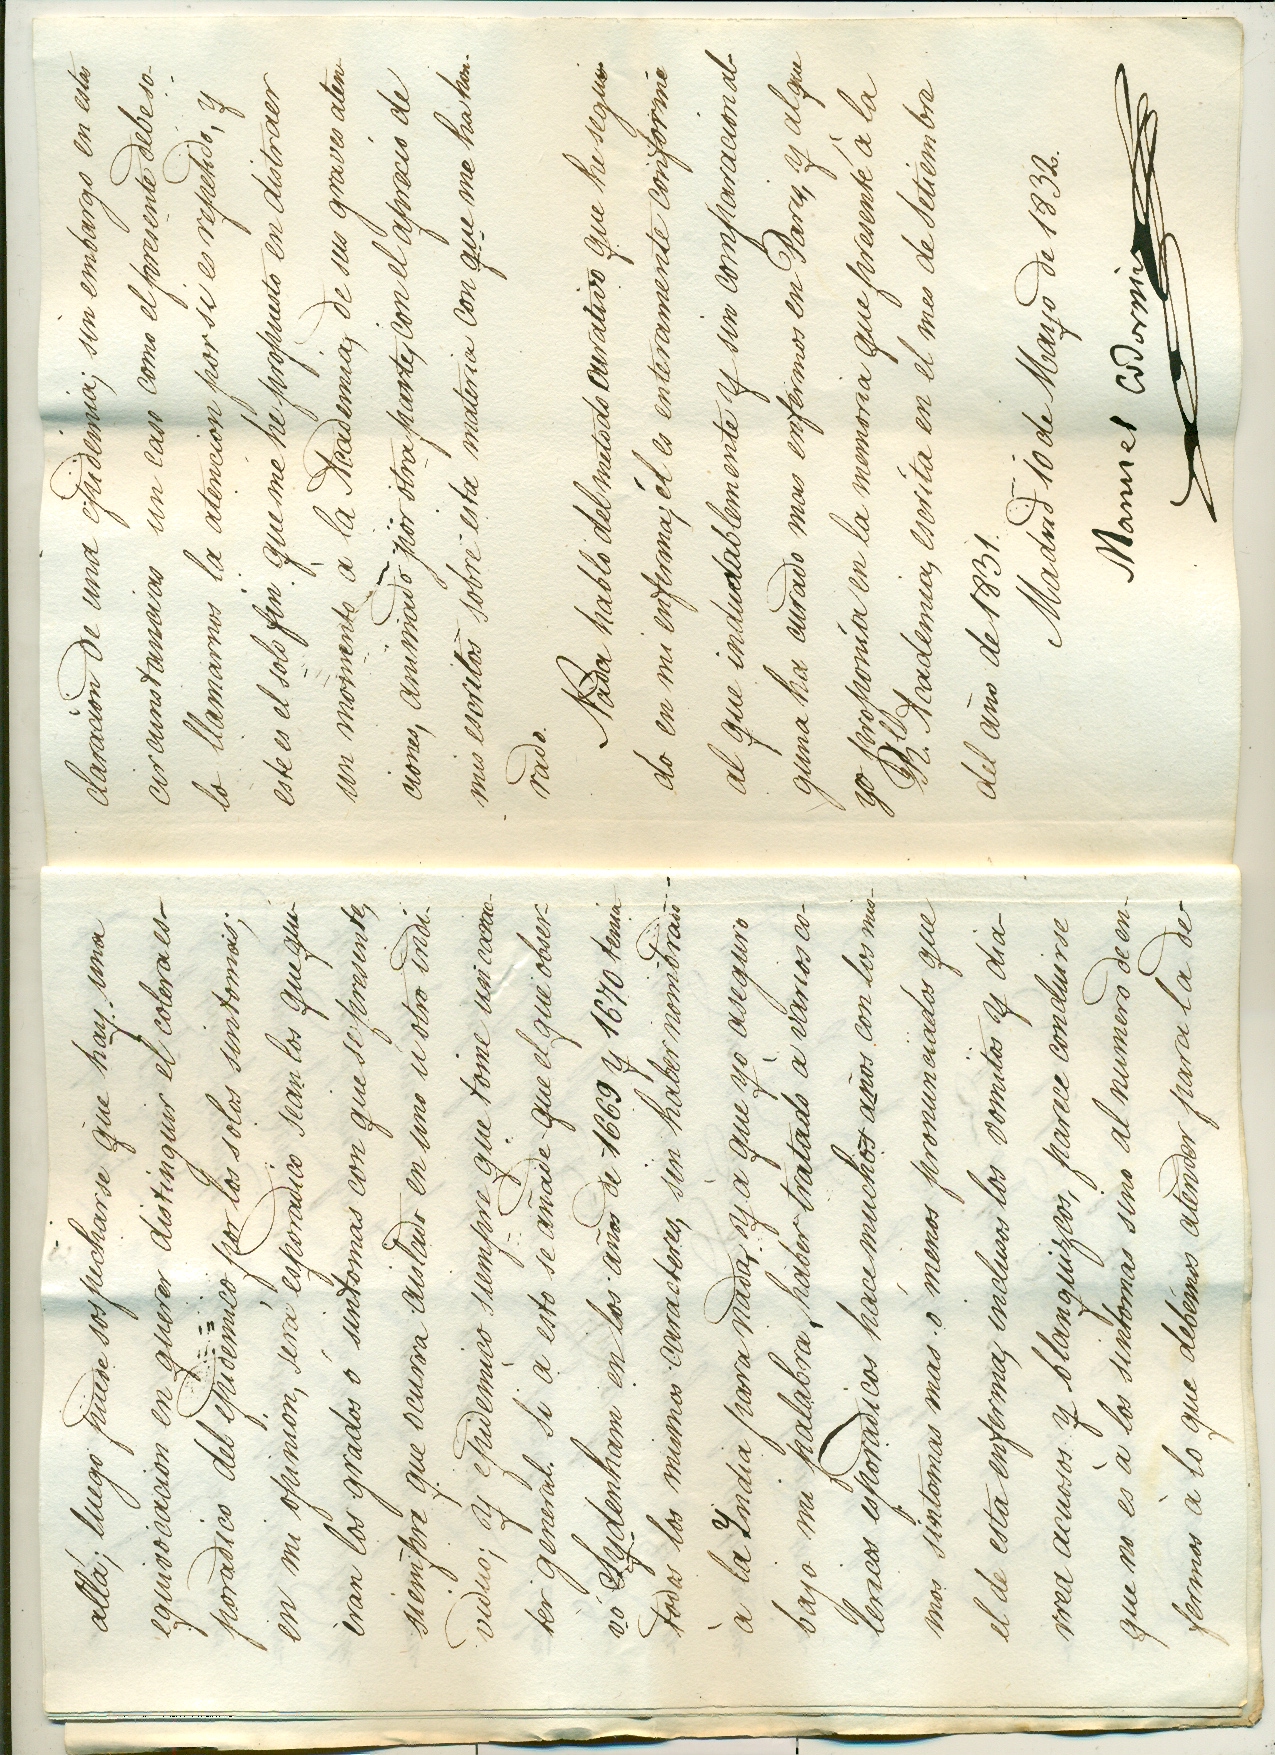 allá; luego puede sospecharse que hay una
equivocacion en querer distinguir el colera es-
poradico del epidemico por los solos sintomas;
en mi opinion, será esporadico sean los que qui-
eran los grados ó sintomas con que se presente,
siempre que ocurra aislado en uno ú otro indi-
viduo; y epidemico siempre que tome un carac-
ter general. Si a esto se añade que el que obser-
vó Sydenham en los años de 1669 y 1670 tenia
todos los mismos caracteres, sin haber nombrado
á la Yndia para nada, y á que yo aseguro
bajo mi palabra, haber tratado á varios co-
lericos esporadicos hace muchos años con los mis-
mos sintomas mas o menos pronunciados que
el de esta enferma, inclusos los vomitos y dia-
rrea acuosos y blanquizcos, parece concluirse
que no es á los sintomas sino al numero de en-
fermos á lo que debemos atender para la de-
claracion de una epidemia; sin embargo en estas
circunstancias un caso como el presente debe so-
lo llamarnos la atencion por si es repetido, y
este es el solo fin que me he propuesto en distraer
un momento á la Academia, de sus graves aten-
ciones, animado por otra parte, con el aprecio de
mis escritos sobre esta materia con que me ha hon-
rado.
Nada hablo del metodo curativo que he segui-
do en mi enferma; él es enteramente conforme
al que indudablemente y sin comparacion al-
guna ha curado mas enfermos en Paris, y al que
yo proponía en la memoria que presenté á la
Rl. Academia, escrita en el mes de Setiembre
del año de 1831.
Madrid 10 de Mayo de 1832.
Manuel Codorniu